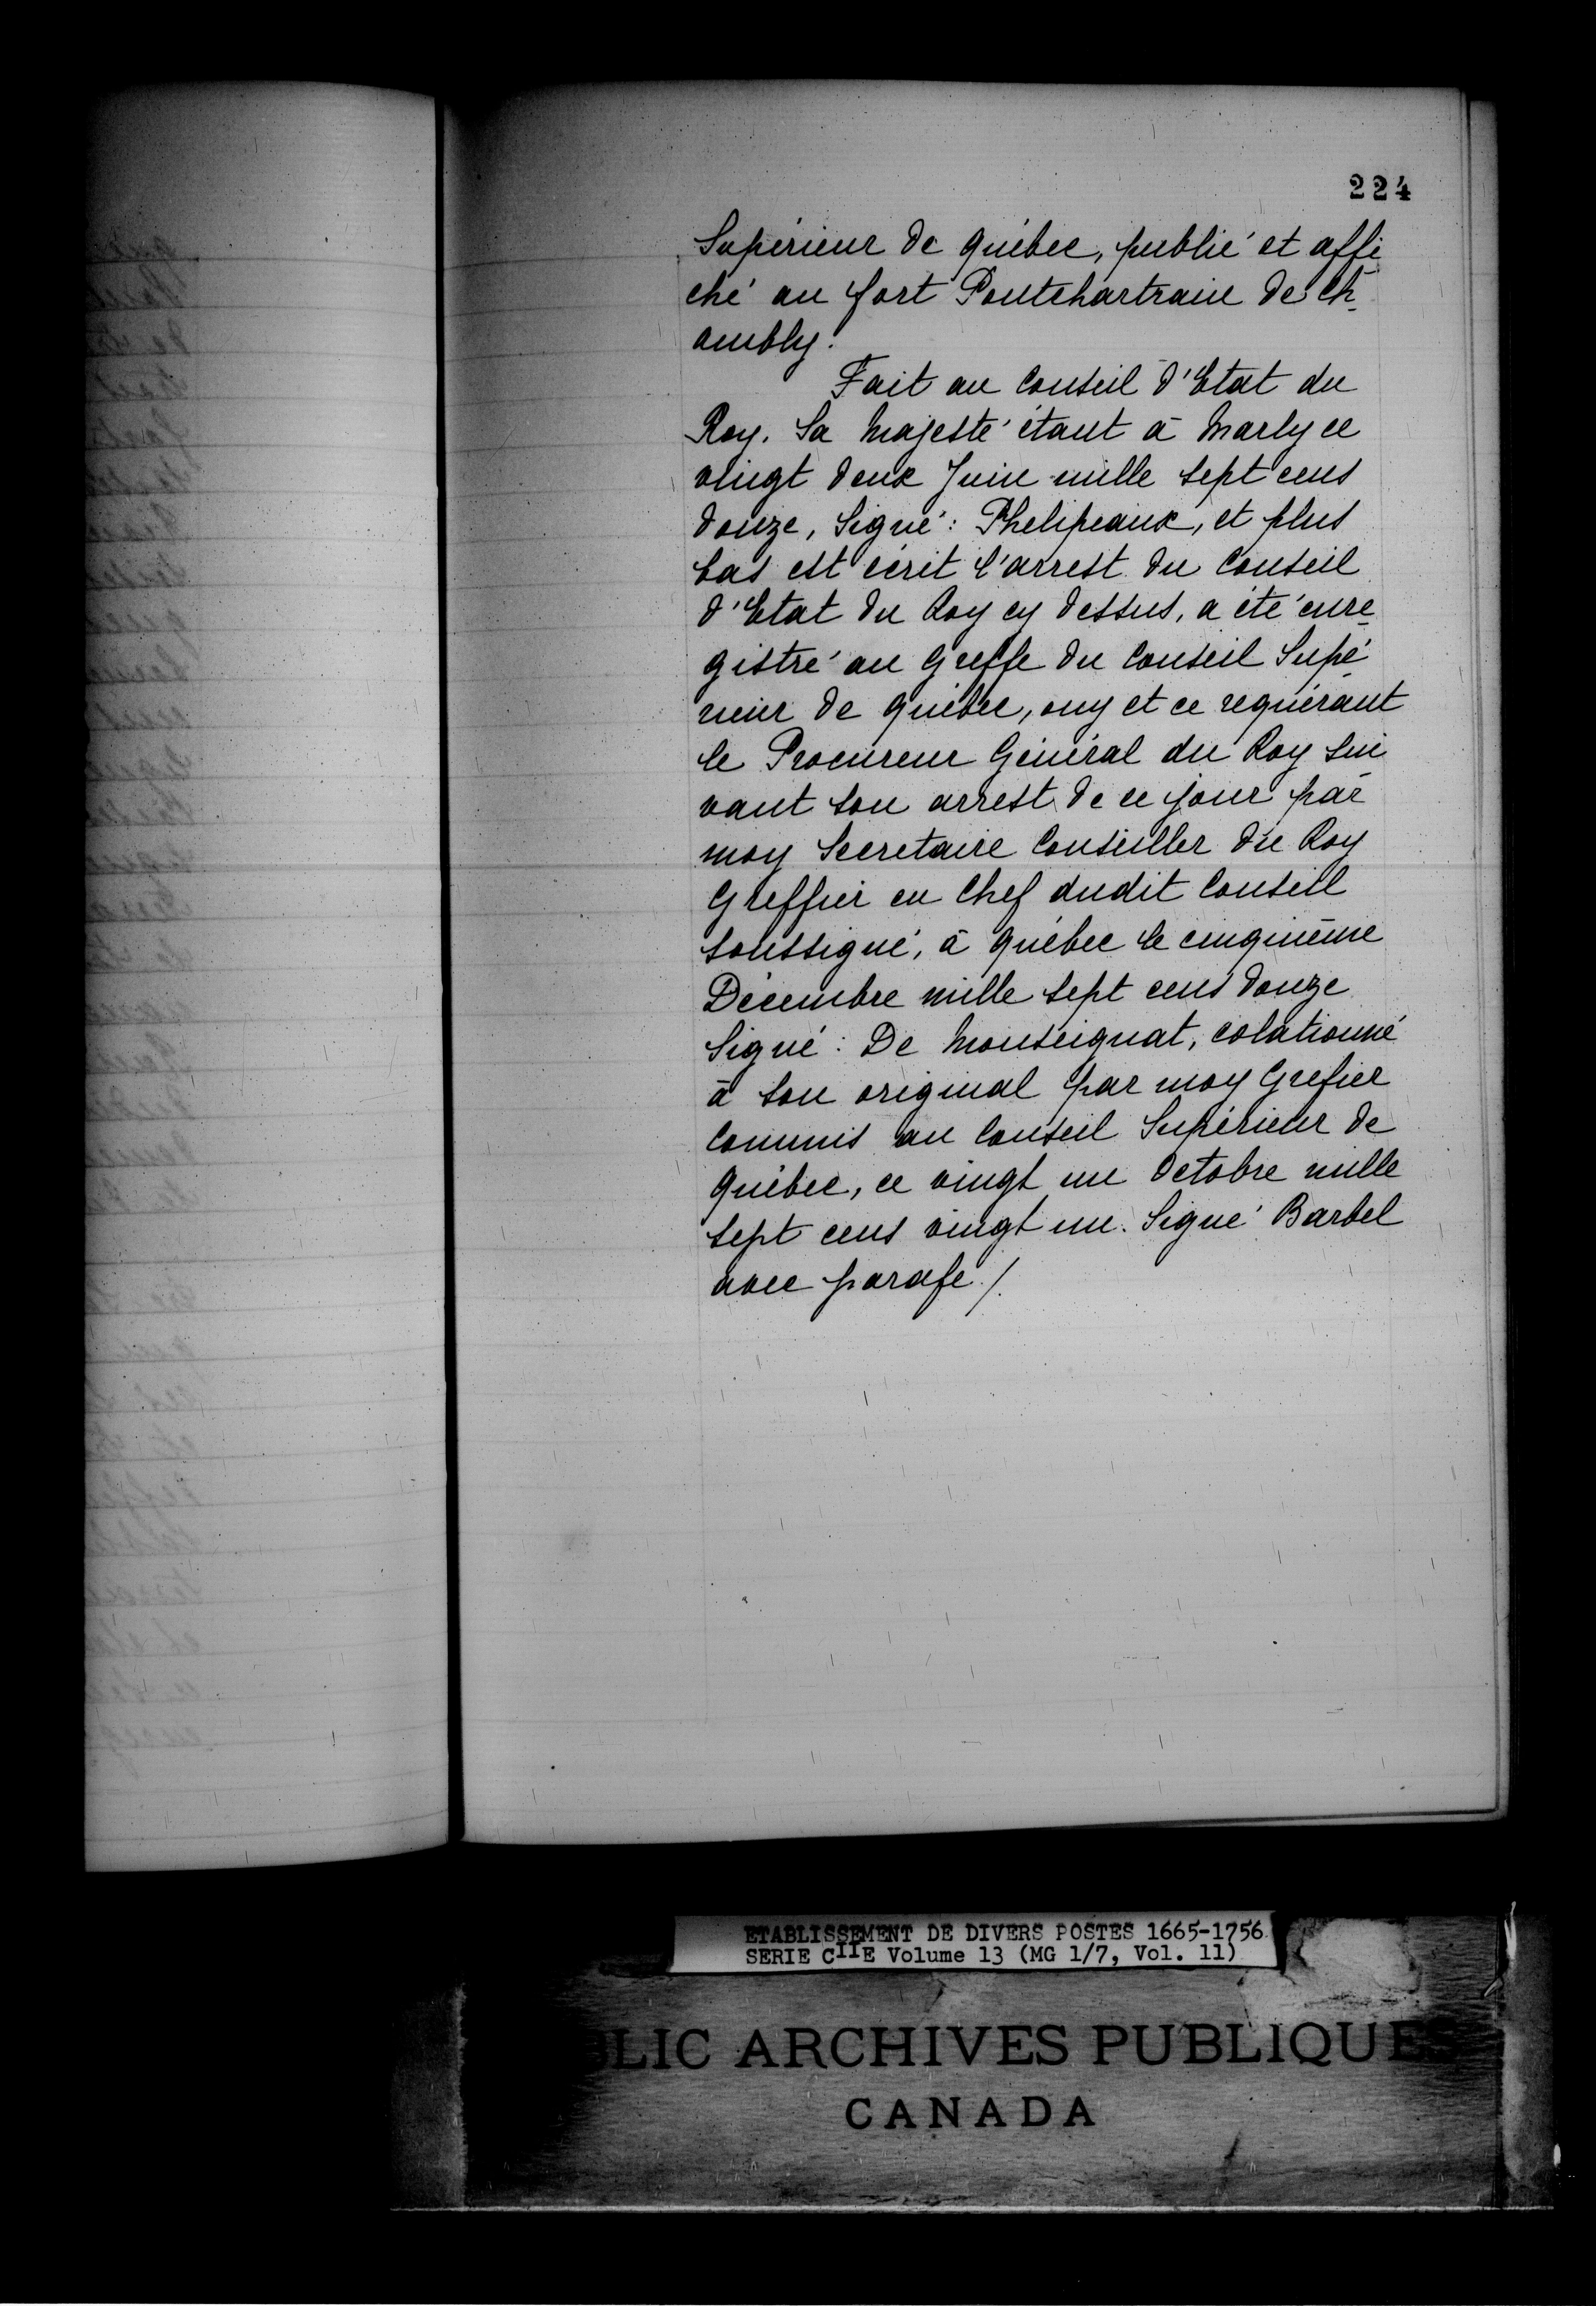 224
Supérieur de Québec, publié et affi
ché au fort Pontchartrain de Ch-
ambly.
Fait au Conseil d'Etat du
Roy. Sa Majesté étant à Marly ce
vingt deux Juin mille sept cens
douze, Signé: Phelipeaux, et plus
bas est écrit l'arrest du Conseil
d'Etat du Roy cy dessus, a été enre-
gistré au Greffe du Conseil Supé-
rieur de Québec, ouy et ce requérant
le Procureur Général du Roy sui
vant son arrest de ce jour par
moy Secretaire Conseiller du Roy
Greffier en Chef dudit Conseil
soussigné, à Québec le cinquième
Décembre mille sept cens douze
Signé: De Monseignat, colationné
à son original par moy Grefier
Commis au Conseil Supérieur de
Québec, ce vingt un Octobre mille
sept cens vingt un. Signé Barbel
avec parafe /.
ETABLISSEMENT DE DIVERS POSTES 1665-1756
SERIE CIIE Volume 13 (MG 1/7, Vol. 11)
BLIC ARCHIVES PUBLIQUES
CANADA